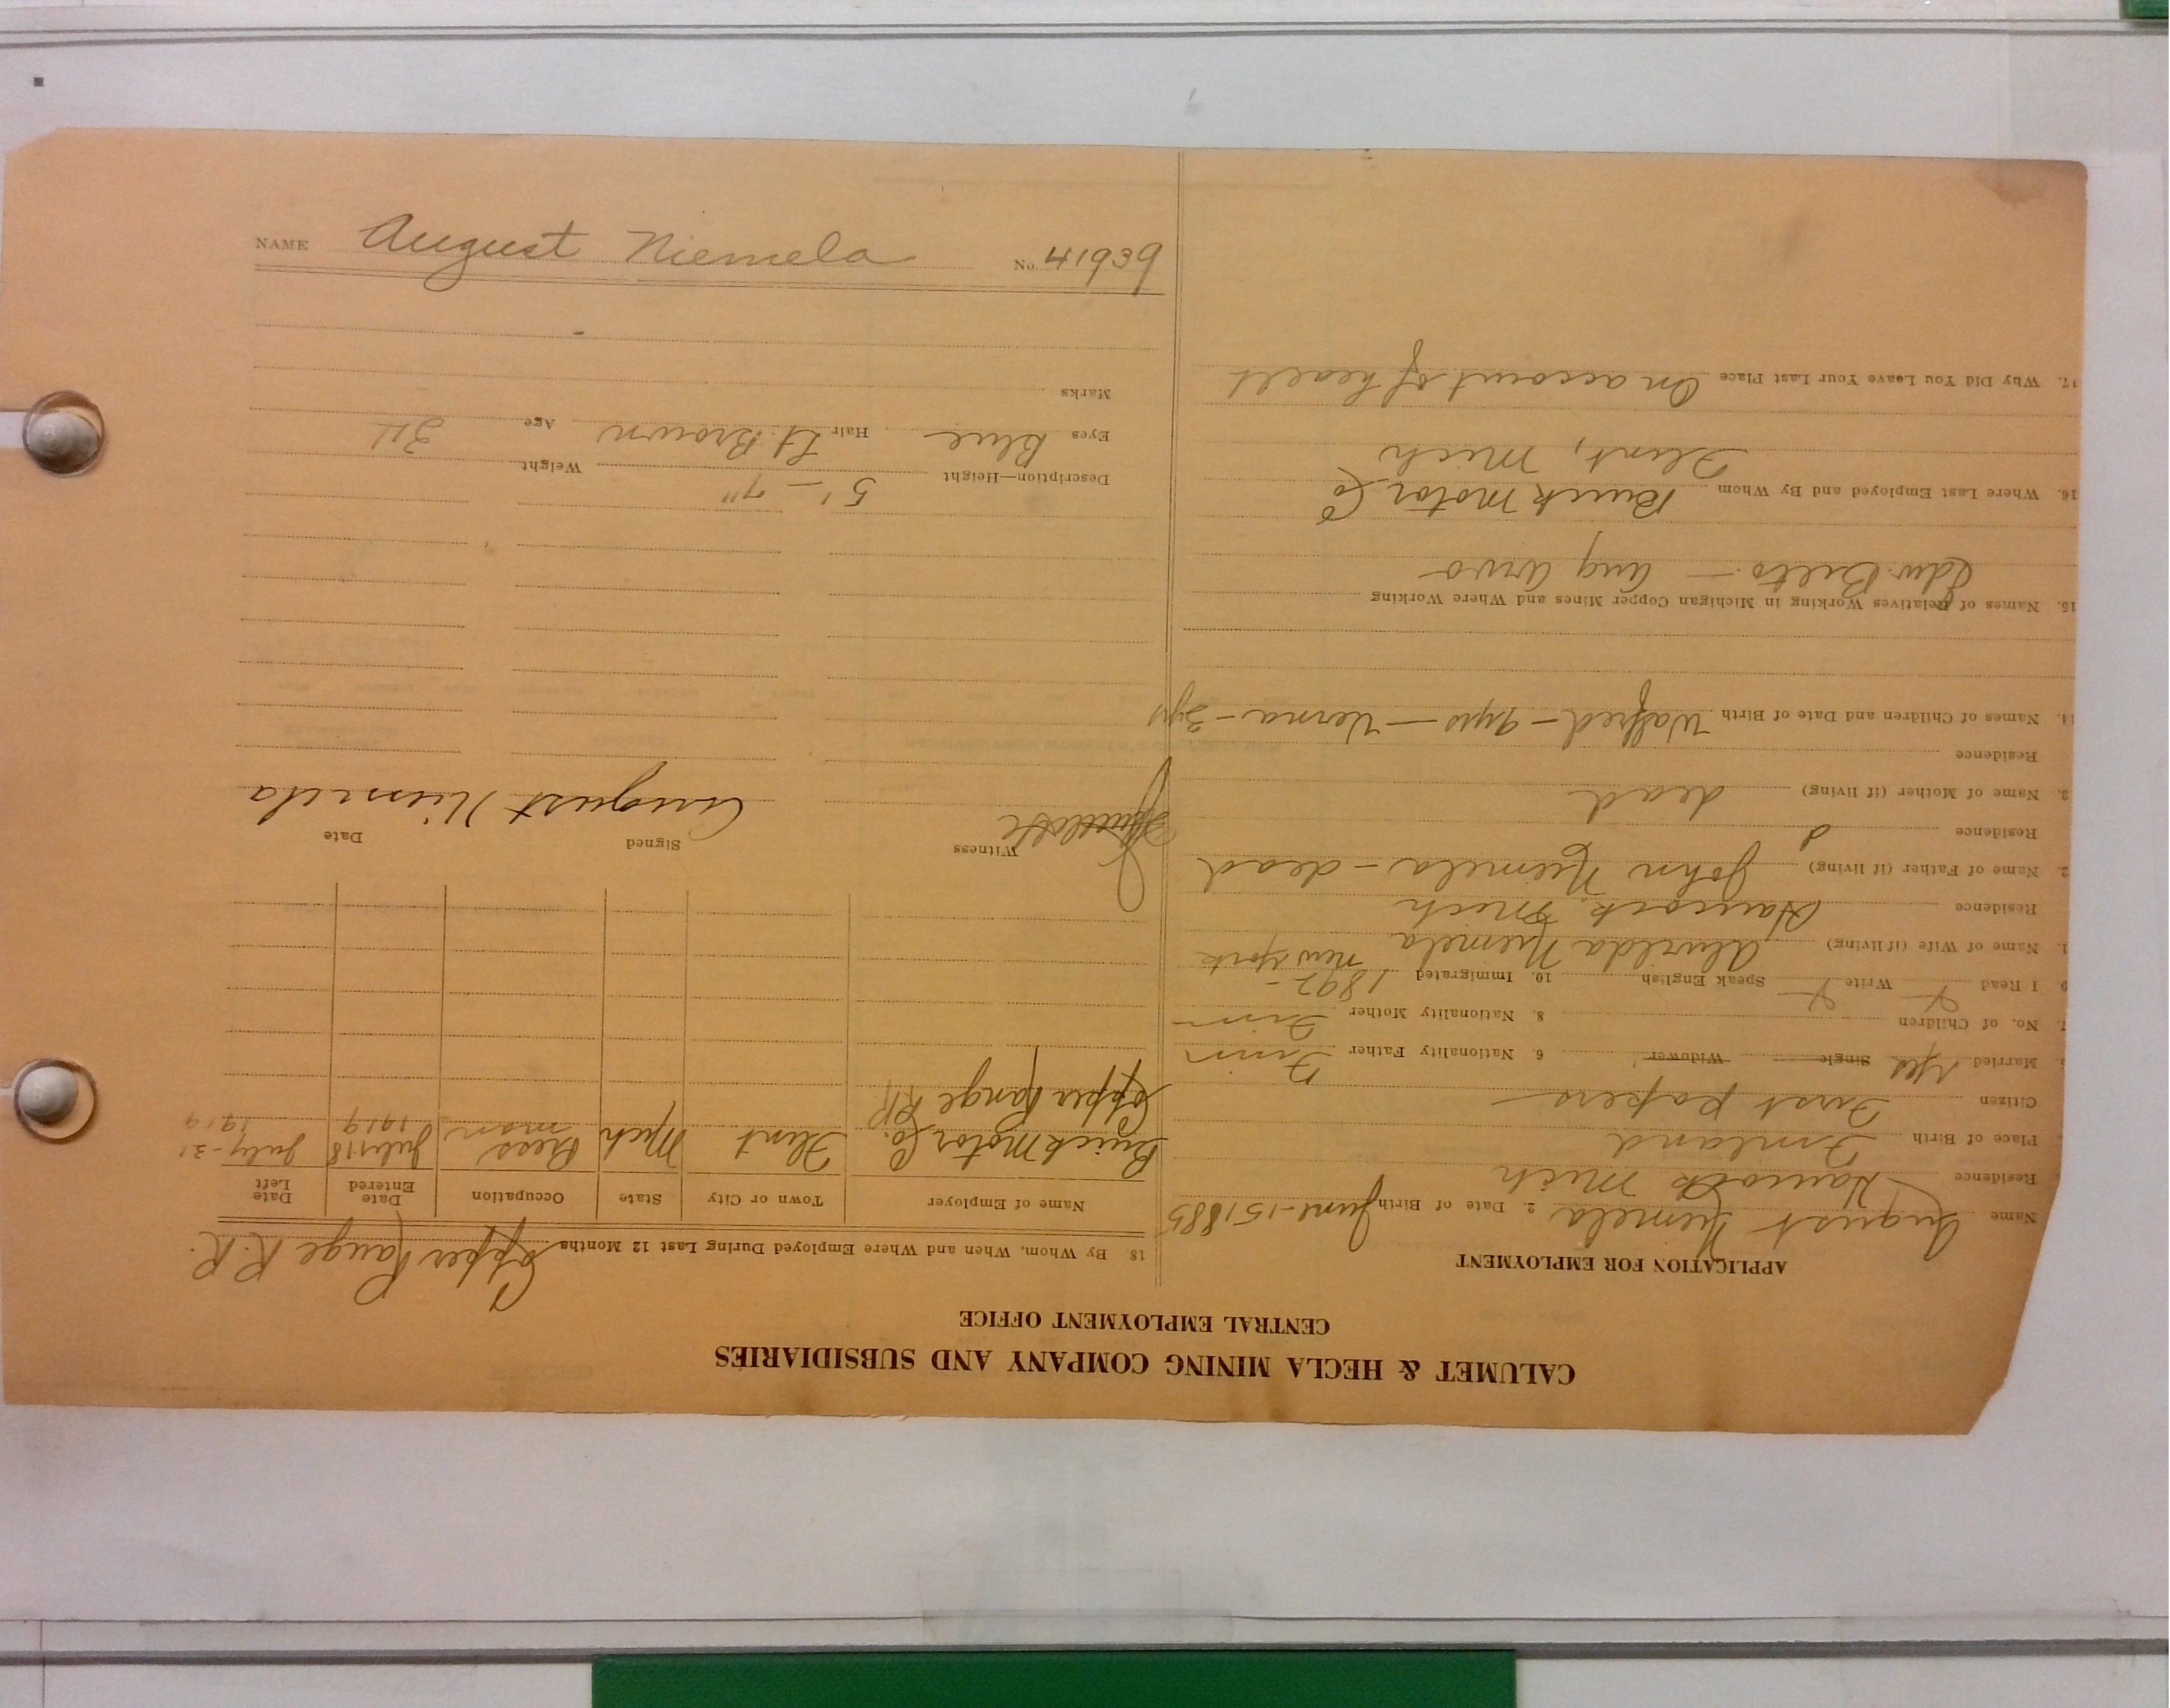 CALUMET & HECLA MINING COMPANY AND SUBSIDIARIES
CENTRAL EMPLOYMENT OFFICE
APPLICATION FOR EMPLOYMENT
Name August Niemela 2. Date of Birth June-15 1885
Residence Hancock Mich
Place of Birth Finland
Citizen First papers
Married Yes Single Widower 6. Nationality Father Finn
7. No. of Children 8. Nationality Mother Finn
9 I Read Write Speak English 10. Immigrated 1892 - New York
1. Name of Wife (if living) Niemela
Residence Hancock, Mich
2. Name of Father (if living) John Niemela - dead
Residence
3. Name of Mother (if living) dead
Residence
14. Names of Children and Date of Birth Walfred - 9 yrs - Verna - 3 yrs
15. Names of Relatives Working in Michigan Copper Mines and Where Working
Edw.
16. Where Last Employed and By Whom Buick Motor Co
Flint, Mich
17. Why Did You Leave Your Last Place On account of health
18. By Whom, When and Where Employed During Last 12 Months Copper Range R.R.
Name of Employer Town or City State Occupation Date Entered Date Left
Buick Motor Co. Flint Mich man July 18 1919 July-31 1919
Copper Range RR
Witness Signed Date
August Niemela
Description—Height 5'-7" Weight
Eyes Blue Hair Lt. Brown Age 34
Marks
NAME August Niemela No. 41939